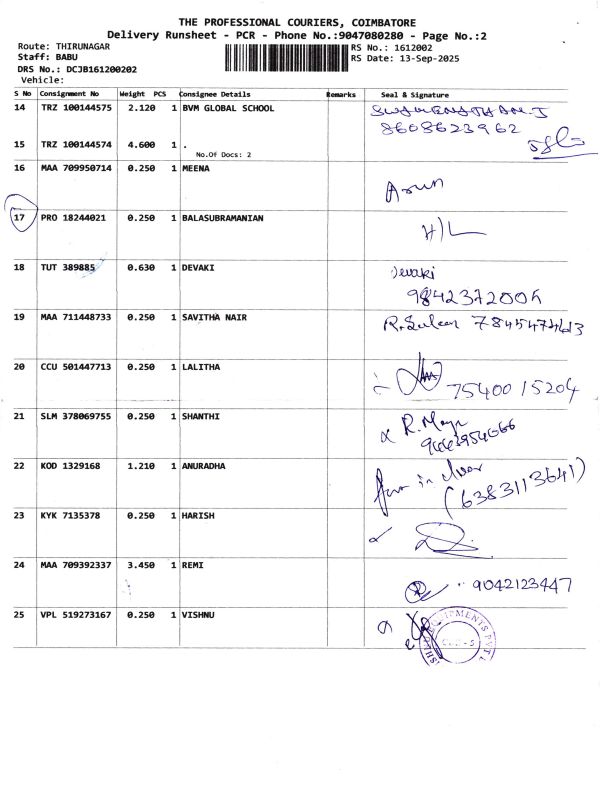 THE PROFESSIONAL COURIERS, COIMBATORE
Delivery Runsheet - PCR - Phone No.:9047080280 - Page No.:2
Route: THIRUNAGAR RS No.: 1612002
Staff: BABU RS Date: 13-Sep-2025
DRS No.: DCJB161200202
Vehicle:
S No Consignment No Weight PCS Consignee Details Remarks Seal & Signature
14 TRZ 100144575 2.120 1 BVM GLOBAL SCHOOL
8608623962
15 TRZ 100144574 4.600 1 .
No.Of Docs: 2
16 MAA 709950714 0.250 1 MEENA
Arun
17 PRO 18244021 0.250 1 BALASUBRAMANIAN
H/L
18 TUT 389885 0.630 1 DEVAKI Devaki
19 MAA 711448733 0.250 1 SAVITHA NAIR
20 CCU 501447713 0.250 1 LALITHA
75400 15204
21 SLM 378069755 0.250 1 SHANTHI
22 KOD 1329168 1.210 1 ANURADHA
(6383113641)
23 KYK 7135378 0.250 1 HARISH
24 MAA 709392337 3.450 1 REMI
9042123447
25 VPL 519273167 0.250 1 VISHNU